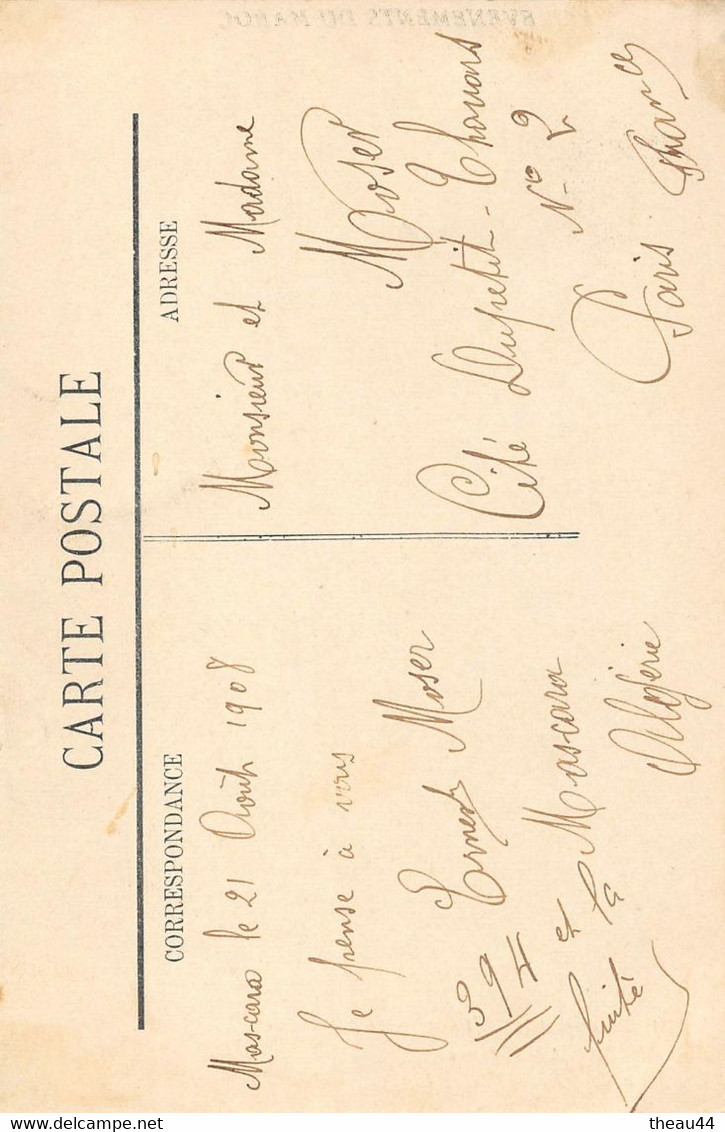 EVENEMENTS DU MAROC
CARTE POSTALE
CORRESPONDANCE
Mascara le 21 Août 1908
Je pense à vous
Ernest Moser
394 et la
fuite
Mascara
Algérie
ADRESSE
Monsieur et Madame
Moser
Cité Dupetit-Thouars
N° 2
Paris France
theau44